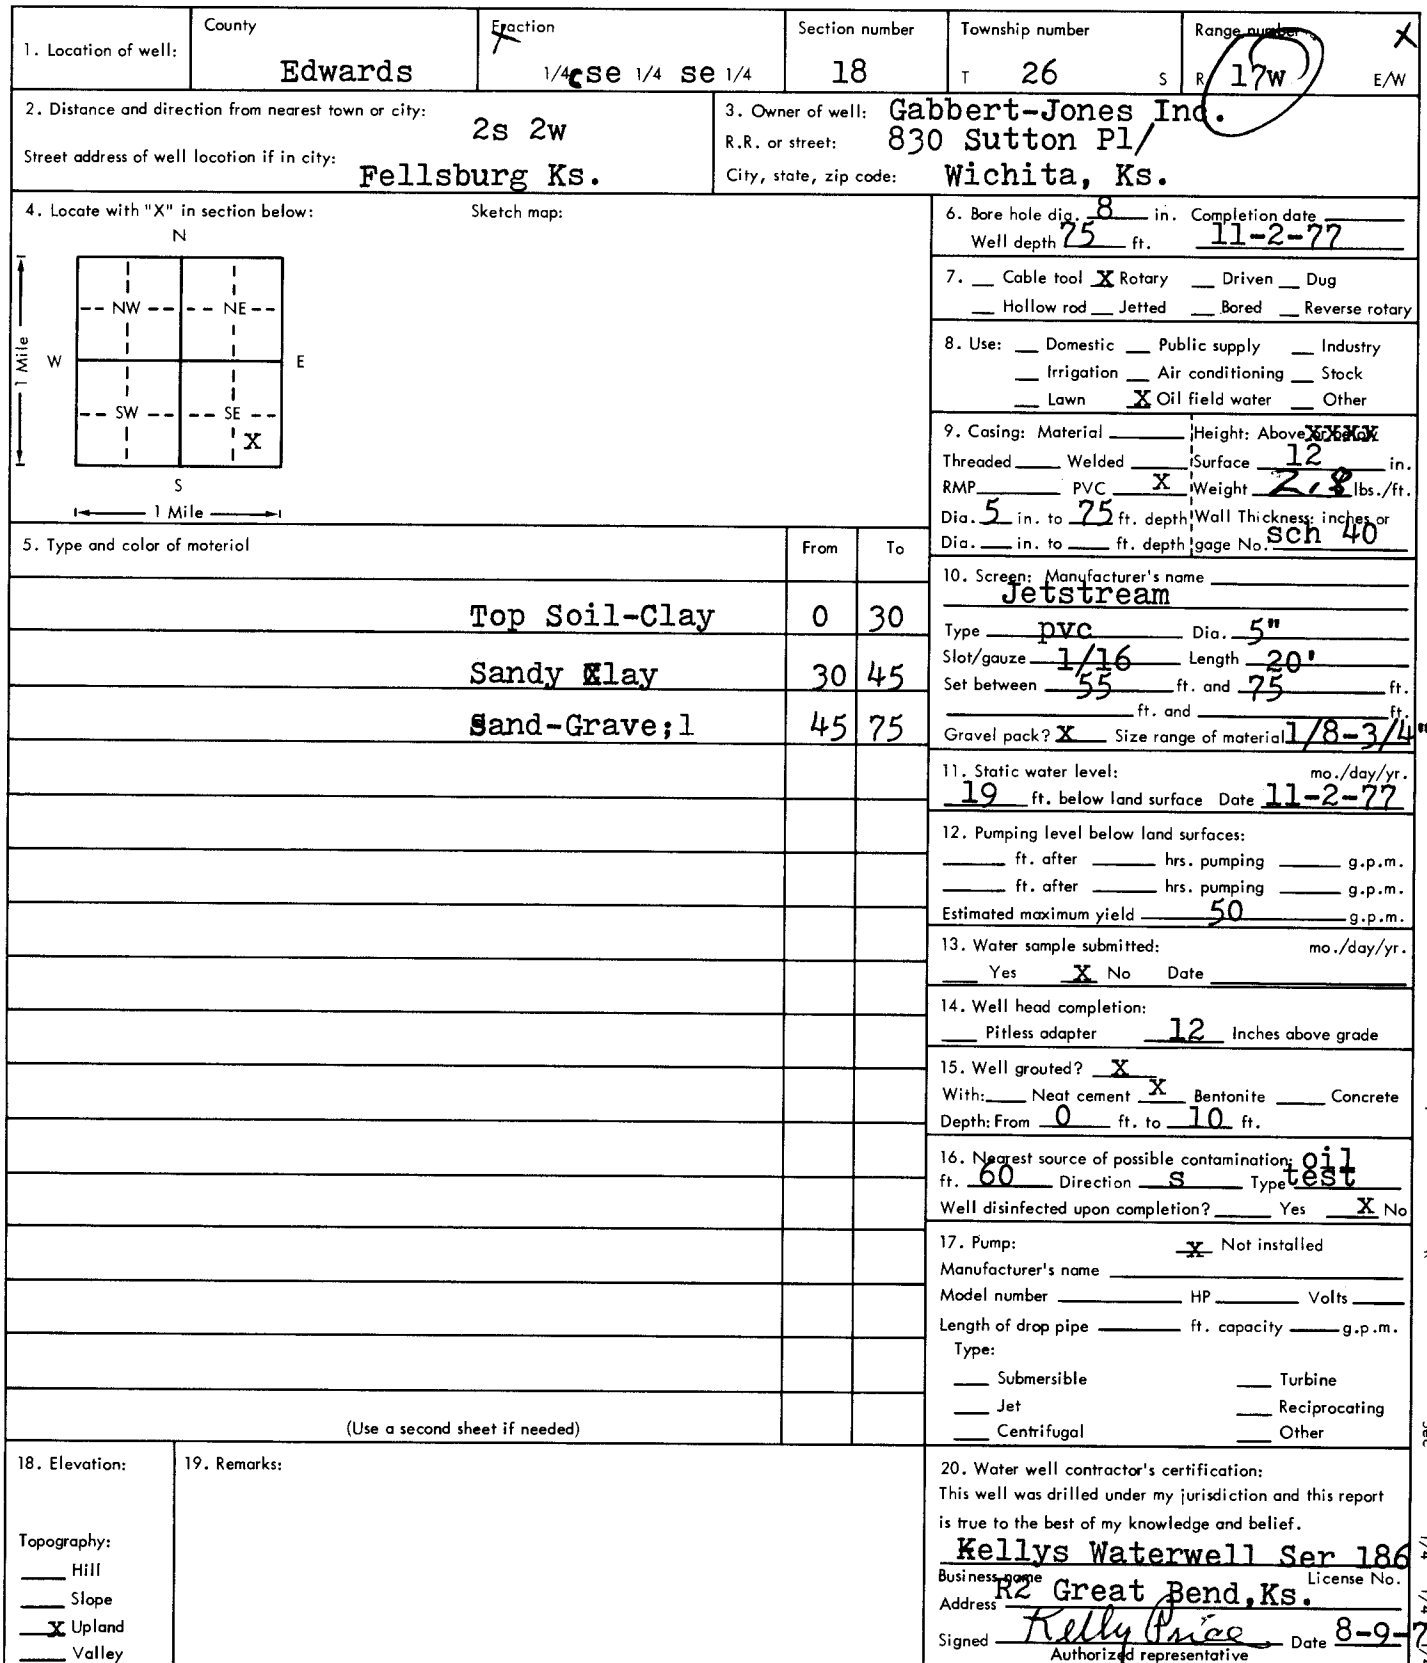 1. Location of well:
County
Edwards
Fraction
1/4 c se 1/4 se 1/4
Section number
18
Township number
T 26 S
Range number
R 17w E/W
2. Distance and direction from nearest town or city:
2s 2w
Street address of well location if in city:
Fellsburg Ks.
3. Owner of well: Gabbert-Jones Inc.
R.R. or street: 830 Sutton Pl/
City, state, zip code: Wichita, Ks.
4. Locate with "X" in section below:
Sketch map:
N
NW NE
W E
1 Mile
SW SE
X
S
1 Mile
5. Type and color of material From To
Top Soil-Clay 0 30
Sandy Clay 30 45
Sand-Grave;l 45 75
(Use a second sheet if needed)
6. Bore hole dia. 8 in. Completion date
Well depth 75 ft. 11-2-77
7. Cable tool X Rotary Driven Dug
Hollow rod Jetted Bored Reverse rotary
8. Use: Domestic Public supply Industry
Irrigation Air conditioning Stock
Lawn X Oil field water Other
9. Casing: Material Height: Above or below
Threaded Welded Surface 12 in.
RMP PVC X Weight 2.8 lbs./ft.
Dia. 5 in. to 75 ft. depth Wall Thickness: inches or
Dia. in. to ft. depth gage No. sch 40
10. Screen: Manufacturer's name
Jetstream
Type pvc Dia. 5"
Slot/gauze 1/16 Length 20'
Set between 55 ft. and 75 ft.
ft. and ft.
Gravel pack? X Size range of material 1/8-3/4"
11. Static water level: mo./day/yr.
19 ft. below land surface Date 11-2-77
12. Pumping level below land surfaces:
ft. after hrs. pumping g.p.m.
ft. after hrs. pumping g.p.m.
Estimated maximum yield 50 g.p.m.
13. Water sample submitted: mo./day/yr.
Yes X No Date
14. Well head completion:
Pitless adapter 12 Inches above grade
15. Well grouted? X
With: Neat cement X Bentonite Concrete
Depth: From 0 ft. to 10 ft.
16. Nearest source of possible contamination: oil
ft. 60 Direction s Type test
Well disinfected upon completion? Yes X No
17. Pump: X Not installed
Manufacturer's name
Model number HP Volts
Length of drop pipe ft. capacity g.p.m.
Type:
Submersible Turbine
Jet Reciprocating
Centrifugal Other
18. Elevation:
Topography:
Hill
Slope
X Upland
Valley
19. Remarks:
20. Water well contractor's certification:
This well was drilled under my jurisdiction and this report
is true to the best of my knowledge and belief.
Kellys Waterwell Ser 186
Business name License No.
Address R2 Great Bend,Ks.
Signed Kelly Price Date 8-9-7
Authorized representative